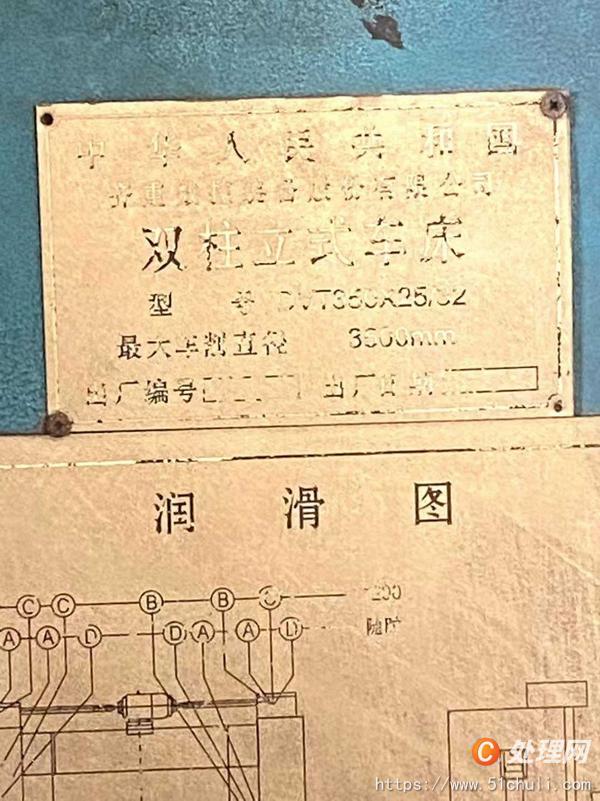 中华人民共和国
齐重数控装备股份有限公司
双柱立式车床
型号 DVT350X25/32
最大车削直径 3500mm
出厂编号 出厂日期
润滑图
C C B B C 1200
A A D D A A D 随时
C 处理网
https://www.51chuli.com